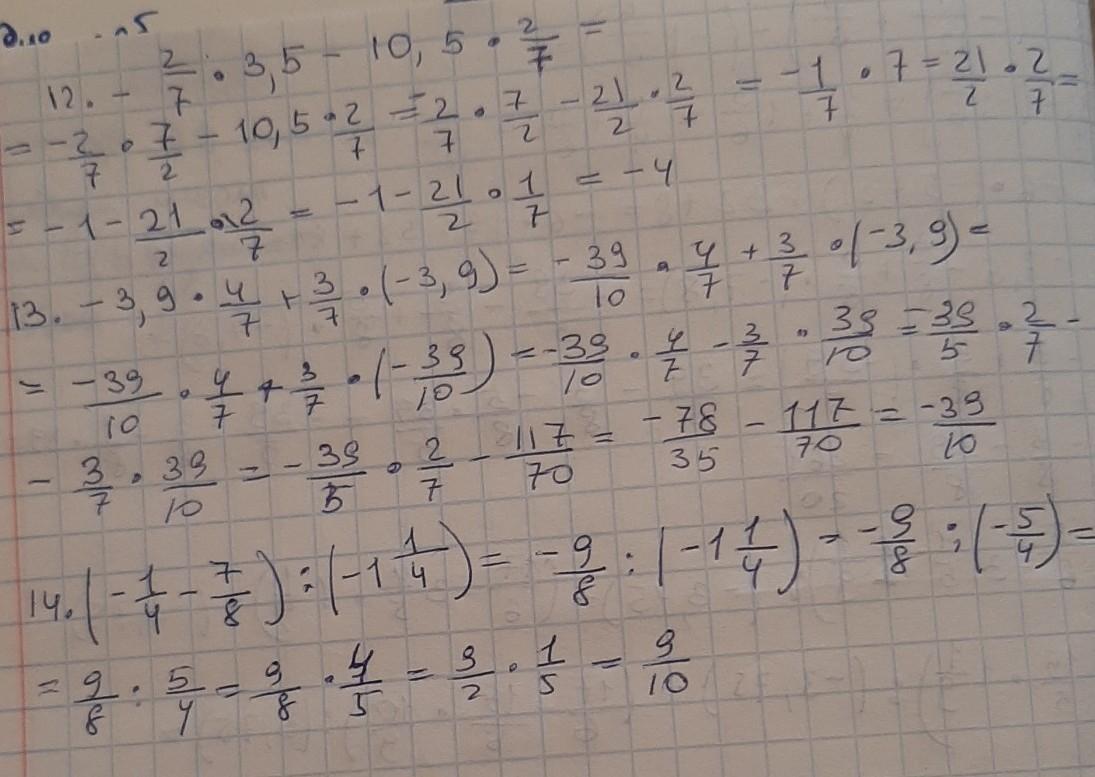 12. - 2/7 · 3,5 - 10,5 · 2/7 =
= -2/7 · 7/2 - 10,5 · 2/7 = -2/7 · 7/2 - 21/2 · 2/7 = -1/7 · 7 = 21/2 · 2/7 =
= -1 - 21/2 · 2/7 = -1 - 21/2 · 1/7 = -4
13. -3,9 · 4/7 + 3/7 · (-3,9) = -39/10 · 4/7 + 3/7 · (-3,9) =
= -39/10 · 4/7 + 3/7 · (-39/10) = -39/10 · 4/7 - 3/7 · 39/10 = -39/5 · 2/7 -
- 3/7 · 39/10 = -39/5 · 2/7 - 117/70 = -78/35 - 117/70 = -39/10
14. (-1/4 - 7/8) : (-1 1/4) = -9/8 : (-1 1/4) = -9/8 : (-5/4) =
= 9/8 : 5/4 = 9/8 · 4/5 = 9/2 · 1/5 = 9/10